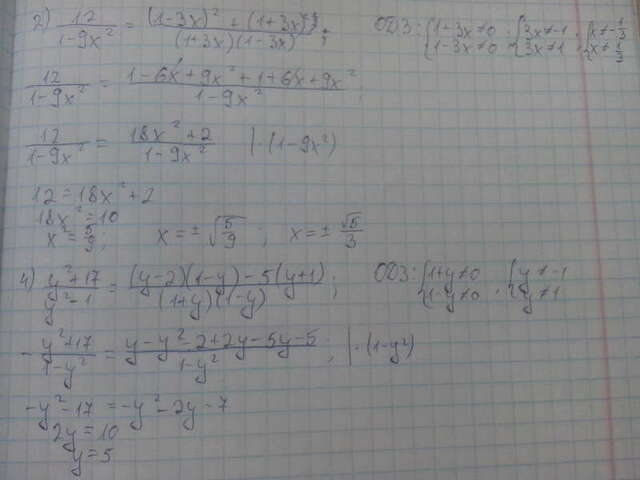 2) 12/(1-9x²) = ((1-3x)² + (1+3x)²)/((1+3x)(1-3x)); ОДЗ: {1+3x≠0, 1-3x≠0; {3x≠-1, 3x≠1; {x≠-1/3, x≠1/3
12/(1-9x²) = (1-6x+9x²+1+6x+9x²)/(1-9x²);
12/(1-9x²) = (18x²+2)/(1-9x²) |·(1-9x²)
12=18x²+2
18x²=10
x²=5/9; x=±√(5/9); x=±√5/3
4) (y²+17)/(y²-1) = ((y-2)(1-y)-5(y+1))/((1+y)(1-y)); ОДЗ: {1+y≠0, 1-y≠0; {y≠-1, y≠1
-(y²+17)/(1-y²) = (y-y²-2+2y-5y-5)/(1-y²); |·(1-y²)
-y²-17=-y²-2y-7
2y=10
y=5